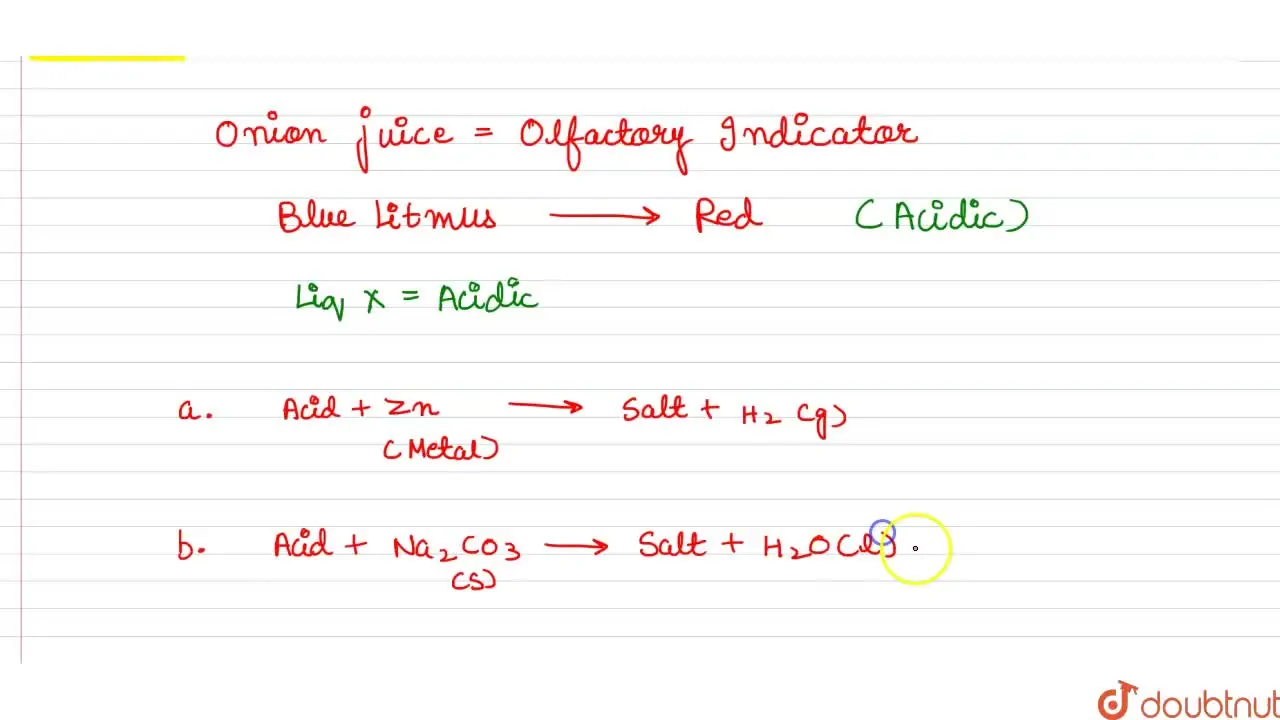 Onion juice = Olfactory Indicator
Blue Litmus → Red (Acidic)
Liq X = Acidic
a. Acid + Zn → Salt + H2 (g)
(Metal)
b. Acid + Na2CO3 → Salt + H2O(l)
(S)
doubtnut